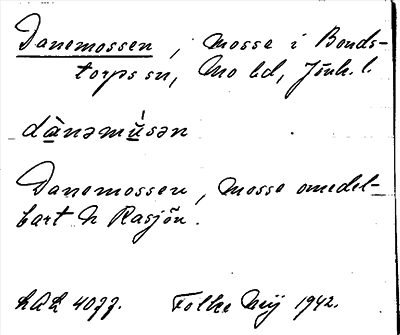 Danemossen, mosse i Bonds-
torps sn, Mo hd, Jönk. l.
dànəmùsən
Danemossen, mosse omedel-
bart N Rasjön.
LAL 4077. Folke
1942.